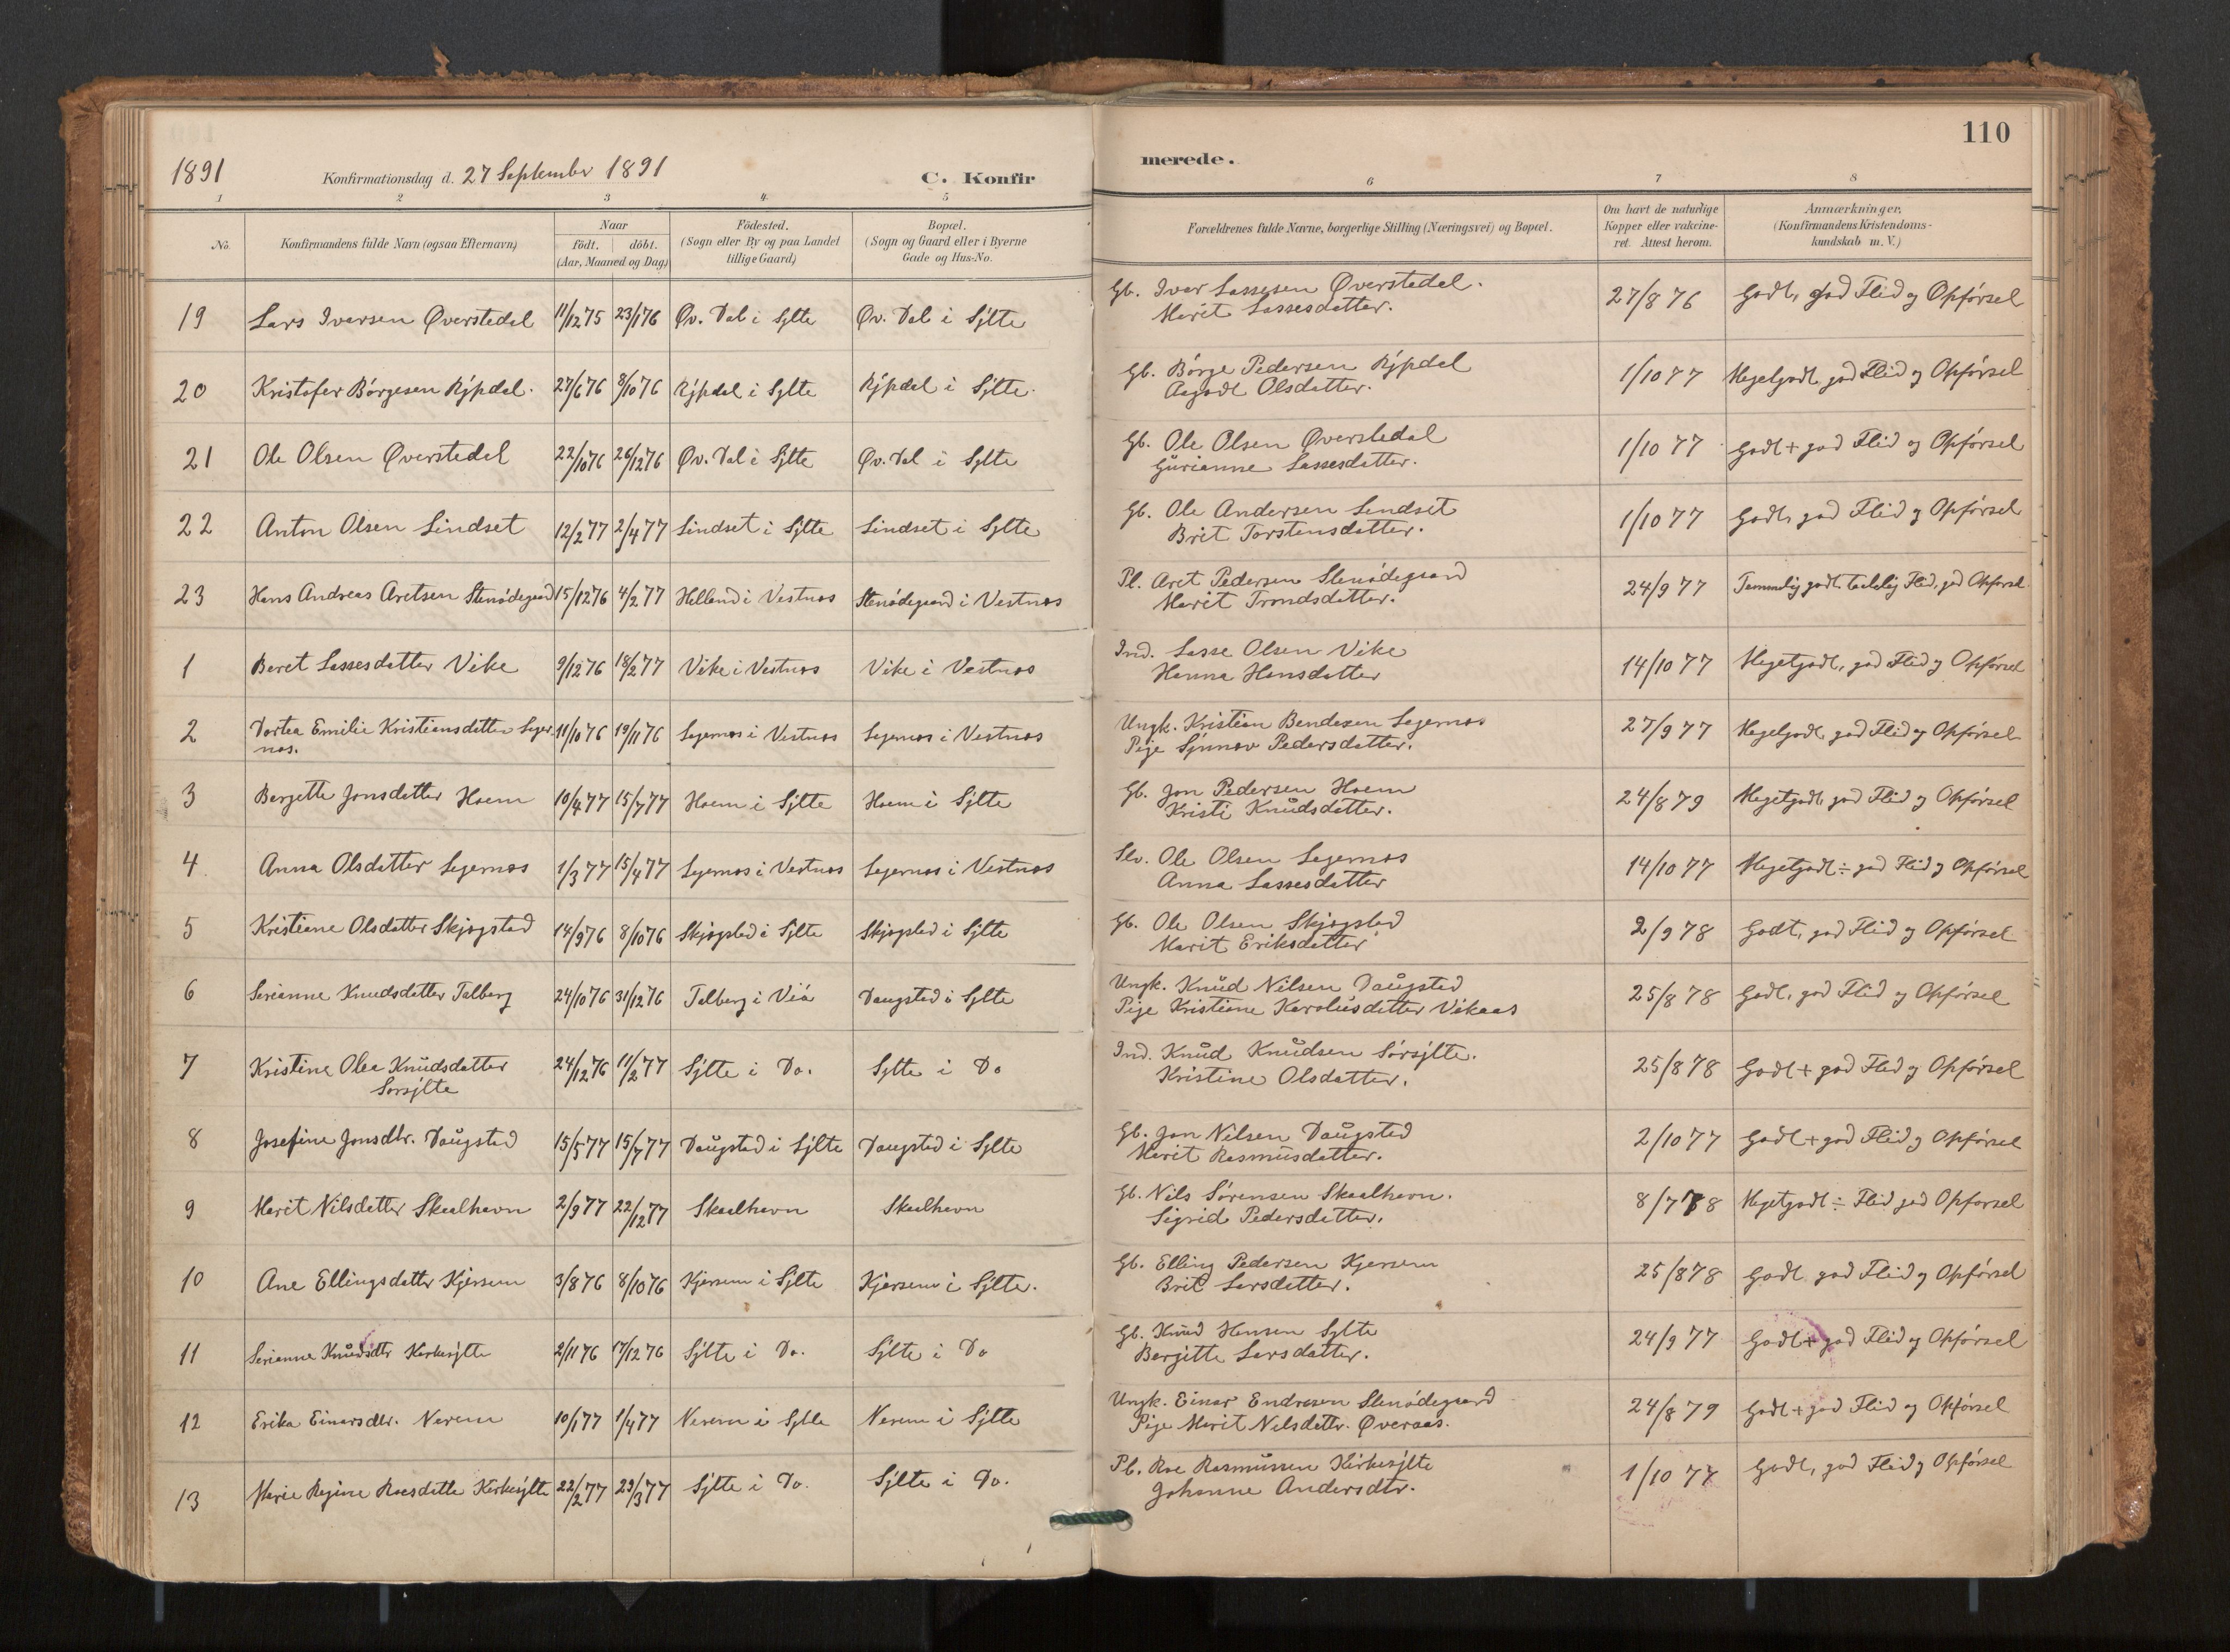 110
1891 Konfirmationsdag d. 27 September 1891 C. Konfir merede.
1 2 3 4. 5 6 7 8
No. Konfirmandens fulde Navn (ogsaa Efternavn) Naar födt. döbt. (Aar, Maaned og Dag.) Födested. (Sogn eller By og paa Landet tillige Gaard) Bopæl. (Sogn og Gaard eller i Byerne Gade og Hus-No. Forældrenes fulde Navne, borgerlige Stilling (Næringsvei) og Bopæl. Om havt de naturlige Kopper eller vakcineret. Attest herom. Anmærkninger, (Konfirmandens Kristendomskundskab m. V.)
19 Lars Iversen Øverstedal 11/12 75 23/1 76 Øv. Dal i Sylte Øv. Dal i Sylte Gb. Iver Lassesen Øverstedal.
Marit Lassesdatter. 27/8 76 Godt, god Flid og Opførsel
20 Kristofer Børgesen Rypdal. 27/6 76 8/10 76 Rypdal i Sylte Rypdal i Sylte. Gb. Børge Pedersen Rypdal
Aagodt Olsdatter. 1/10 77 Megetgodt, god Flid og Opførsel
21 Ole Olsen Øverstedal 22/10 76 26/12 76 Øv. Dal i Sylte Øv. Dal i Sylte Gb. Ole Olsen Øverstedal
Gurianne Lassesdatter. 1/10 77 Godt + god Flid og Opførsel
22 Anton Olsen Lindset 12/2 77 2/4 77 Lindset i Sylte Lindset i Sylte Gb. Ole Andersen Lindset
Brit Torstensdatter. 1/10 77 Godt, god Flid og Opførsel
23 Hans Andreas Aretsen Stenødegaard 15/12 76 4/2 77 Helland i Vestnes Stenødegaard i Vestnes Pl. Aret Pedersen Stenødegaard
Marit Trondsdatter. 24/9 77 Temmelig godt. taalelig Flid, god Opførsel
1 Beret Lassesdatter Vike 9/12 76 18/2 77 Vike i Vestnes Vike i Vestnes Ind. Lasse Olsen Vike
Hanna Hansdatter 14/10 77 Megetgodt, god Flid og Opførsel
2 Dortea Emilie Kristiansdatter Leger
nes. 11/10 76 19/11 76 Legernes i Vestnes Legernes i Vestnes Ungk. Kristian Bendixen Legernes
Pige Synnøv Pedersdatter. 27/9 77 Megetgodt, god Flid og Opførsel
3 Bergette Jonsdatter Hoem 10/4 77 15/7 77 Hoem i Sylte Hoem i Sylte Gb. Jon Pedersen Hoem
Kristi Knudsdatter. 24/8 79 Megetgodt, god Flid og Opførsel
4 Anna Olsdatter Legernes 1/3 77 15/4 77 Legernes i Vestnes Legernes i Vestnes Slv. Ole Olsen Legernes
Anna Lassesdatter 14/10 77 Megetgodt ÷ god Flid og Opførsel
5 Kristiane Olsdatter Skjegstad 14/9 76 8/10 76 Skjegstad i Sylte Skjegstad i Sylte Gb. Ole Olsen Skjegstad
Marit Eriksdatter 2/9 78 Godt, god Flid og Opførsel
6 Serianne Knudsdatter Talberg 24/10 76 31/12 76 Talberg i Viø Daugstad i Sylte Ungk. Knud Nilsen Daugstad
Pige Kristiane Karolusdatter Vikaas 25/8 78 Godt, god Flid og Opførsel
7 Kristine Olea Knudsdatter
Sørsylte 24/12 76 11/2 77 Sylte i Do. Sylte i Do Ind. Knud Knudsen Sørsylte.
Kristine Olsdatter. 25/8 78 Godt + god Flid og Opførsel
8 Josefine Jonsdtr. Daugstad 15/5 77 15/7 77 Daugstad i Sylte Daugstad i Sylte Gb. Jon Nilsen Daugstad
Marit Rasmusdatter. 2/10 77 Godt + god Flid og Opførsel
9 Marit Nilsdatter Skaalhavn 2/9 77 22/12 77 Skaalhavn Skaalhavn Gb. Nils Sørensen Skaalhavn.
Sigrid Pedersdatter. 8/7 78 Megetgodt ÷ Flid god Opførsel
10 Ane Ellingsdatter Kjersem 3/8 76 8/10 76 Kjersem i Sylte Kjersem i Sylte. Gb. Elling Pedersen Kjersem
Brit Larsdatter. 25/8 78 Godt god Flid og Opførsel
11 Serianne Knudsdtr Kirkesylte 2/11 76 17/12 76 Sylte i Do. Sylte i Do Gb. Knud Hansen Sylte
Bergitte Larsdatter. 24/9 77 Godt + god Flid og Opførsel
12 Erika Einarsdtr. Nerem 10/1 77 1/4 77 Nerem i Sylte Nerem i Sylte Ungk. Einar Endresen Stenødegaard
Pige Marit Nilsdattr. Øveraas. 24/8 79 Godt + god Flid og Opførsel
13 Marie Regine Roesdatter Kirkesylte 22/2 77 29/3 77 Sylte i Do. Sylte i Do. Pl. Roe Rasmussen Kirkesylte
Johanne Andersdtr. 1/10 77 Godt, god Flid og Opførsel